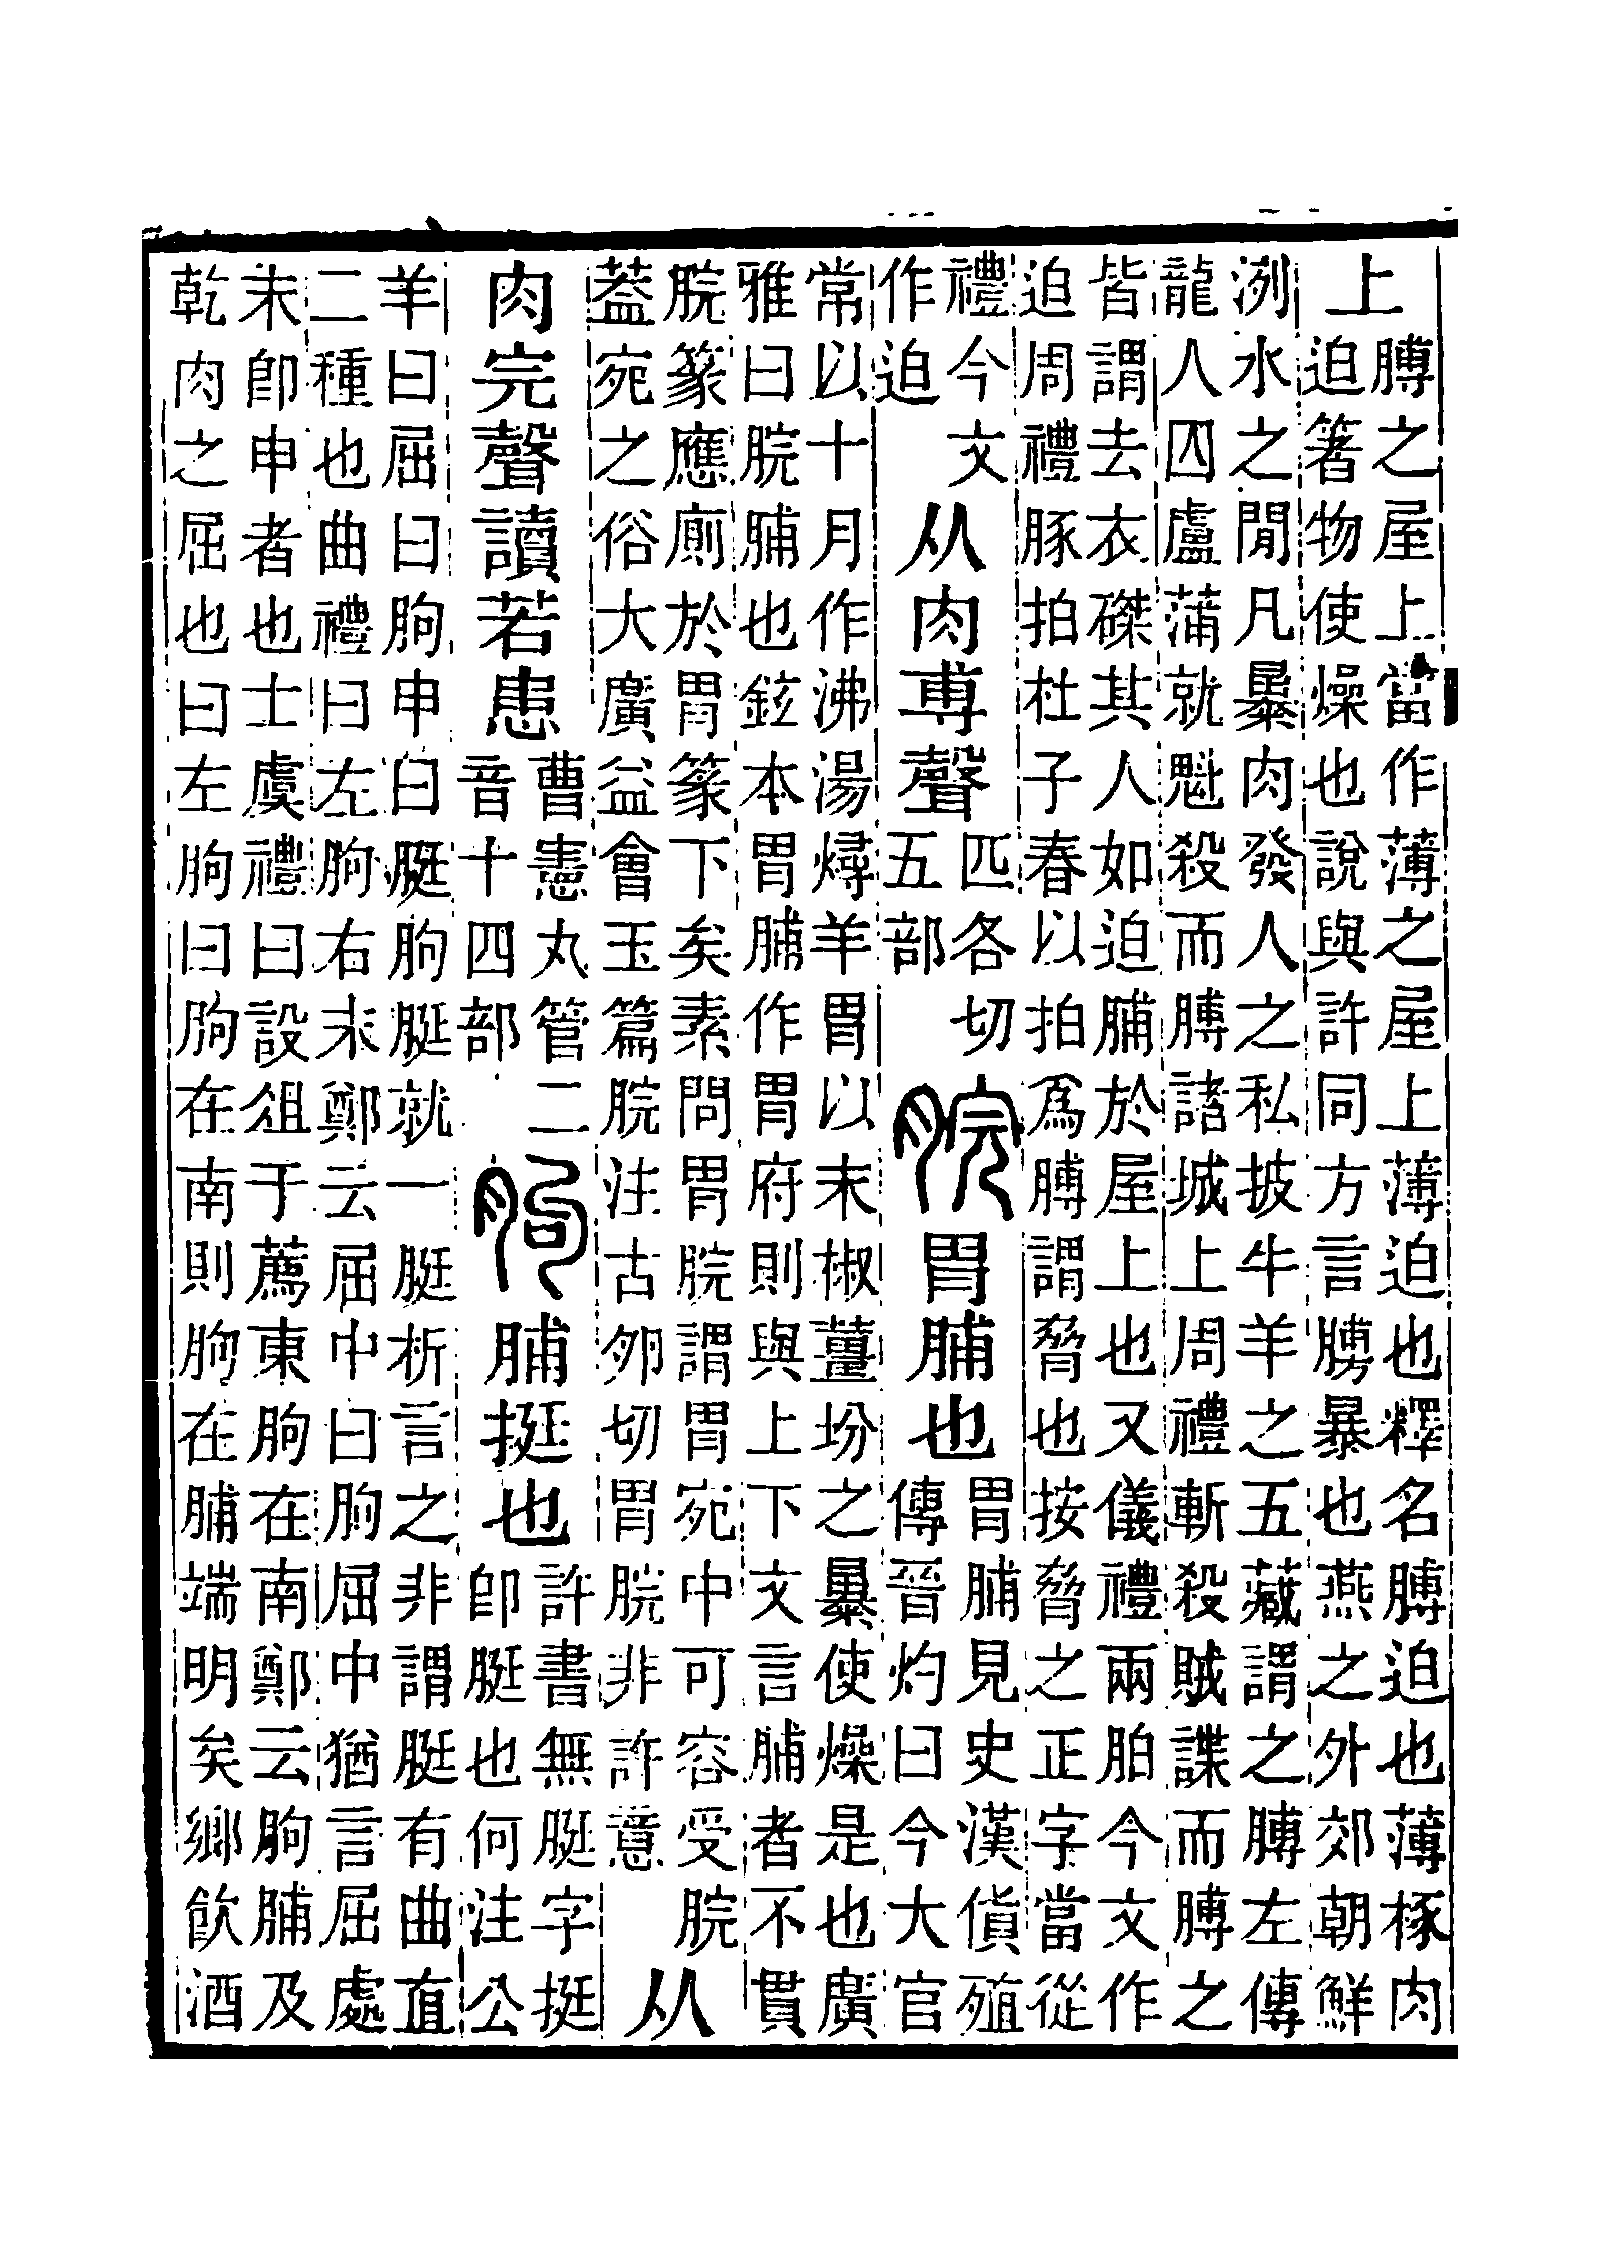 上
膊之屋上當作薄之屋上薄迫也釋名膊迫也薄椓肉
迫箸物使燥也說與許同方言膊暴也燕之外郊朝鮮
洌水之閒凡㬥肉發人之私披牛羊之五藏謂之膊左傳
龍人囚盧蒲就魁殺而膊諸城上周禮斬殺賊諜而膊之
皆謂去衣磔其人如迫脯於屋上也又儀禮兩胉今文作
迫周禮豚拍杜子春以拍爲膊謂脅也按脅之正字當從
禮今文
作迫
从肉尃聲
匹各切
五部
脘
胃脯也
胃脯見史漢貨殖
傳晉灼曰今大官
常以十月作沸湯燖羊胃以末椒薑坋之㬥使燥是也廣
雅曰脘脯也鉉本胃脯作胃府則與上下文言脯者不貫
脘篆應廁於胃篆下矣素問胃脘謂胃宛中可容受脘
葢宛之俗大廣益會玉篇脘注古卵切胃脘非許意
从
肉完聲讀若患
曹憲丸管二
音十四部
朐
脯挺也
許書無脡字挺
卽脡也何注公
羊曰屈曰朐申曰脡朐脡就一脡析言之非謂脡有曲直
二種也曲禮曰左朐右末鄭云屈中曰朐屈中猶言屈處
末卽申者也士虞禮曰設俎于薦東朐在南鄭云朐脯及
乾肉之屈也曰左朐曰朐在南則朐在脯端明矣鄉飲酒